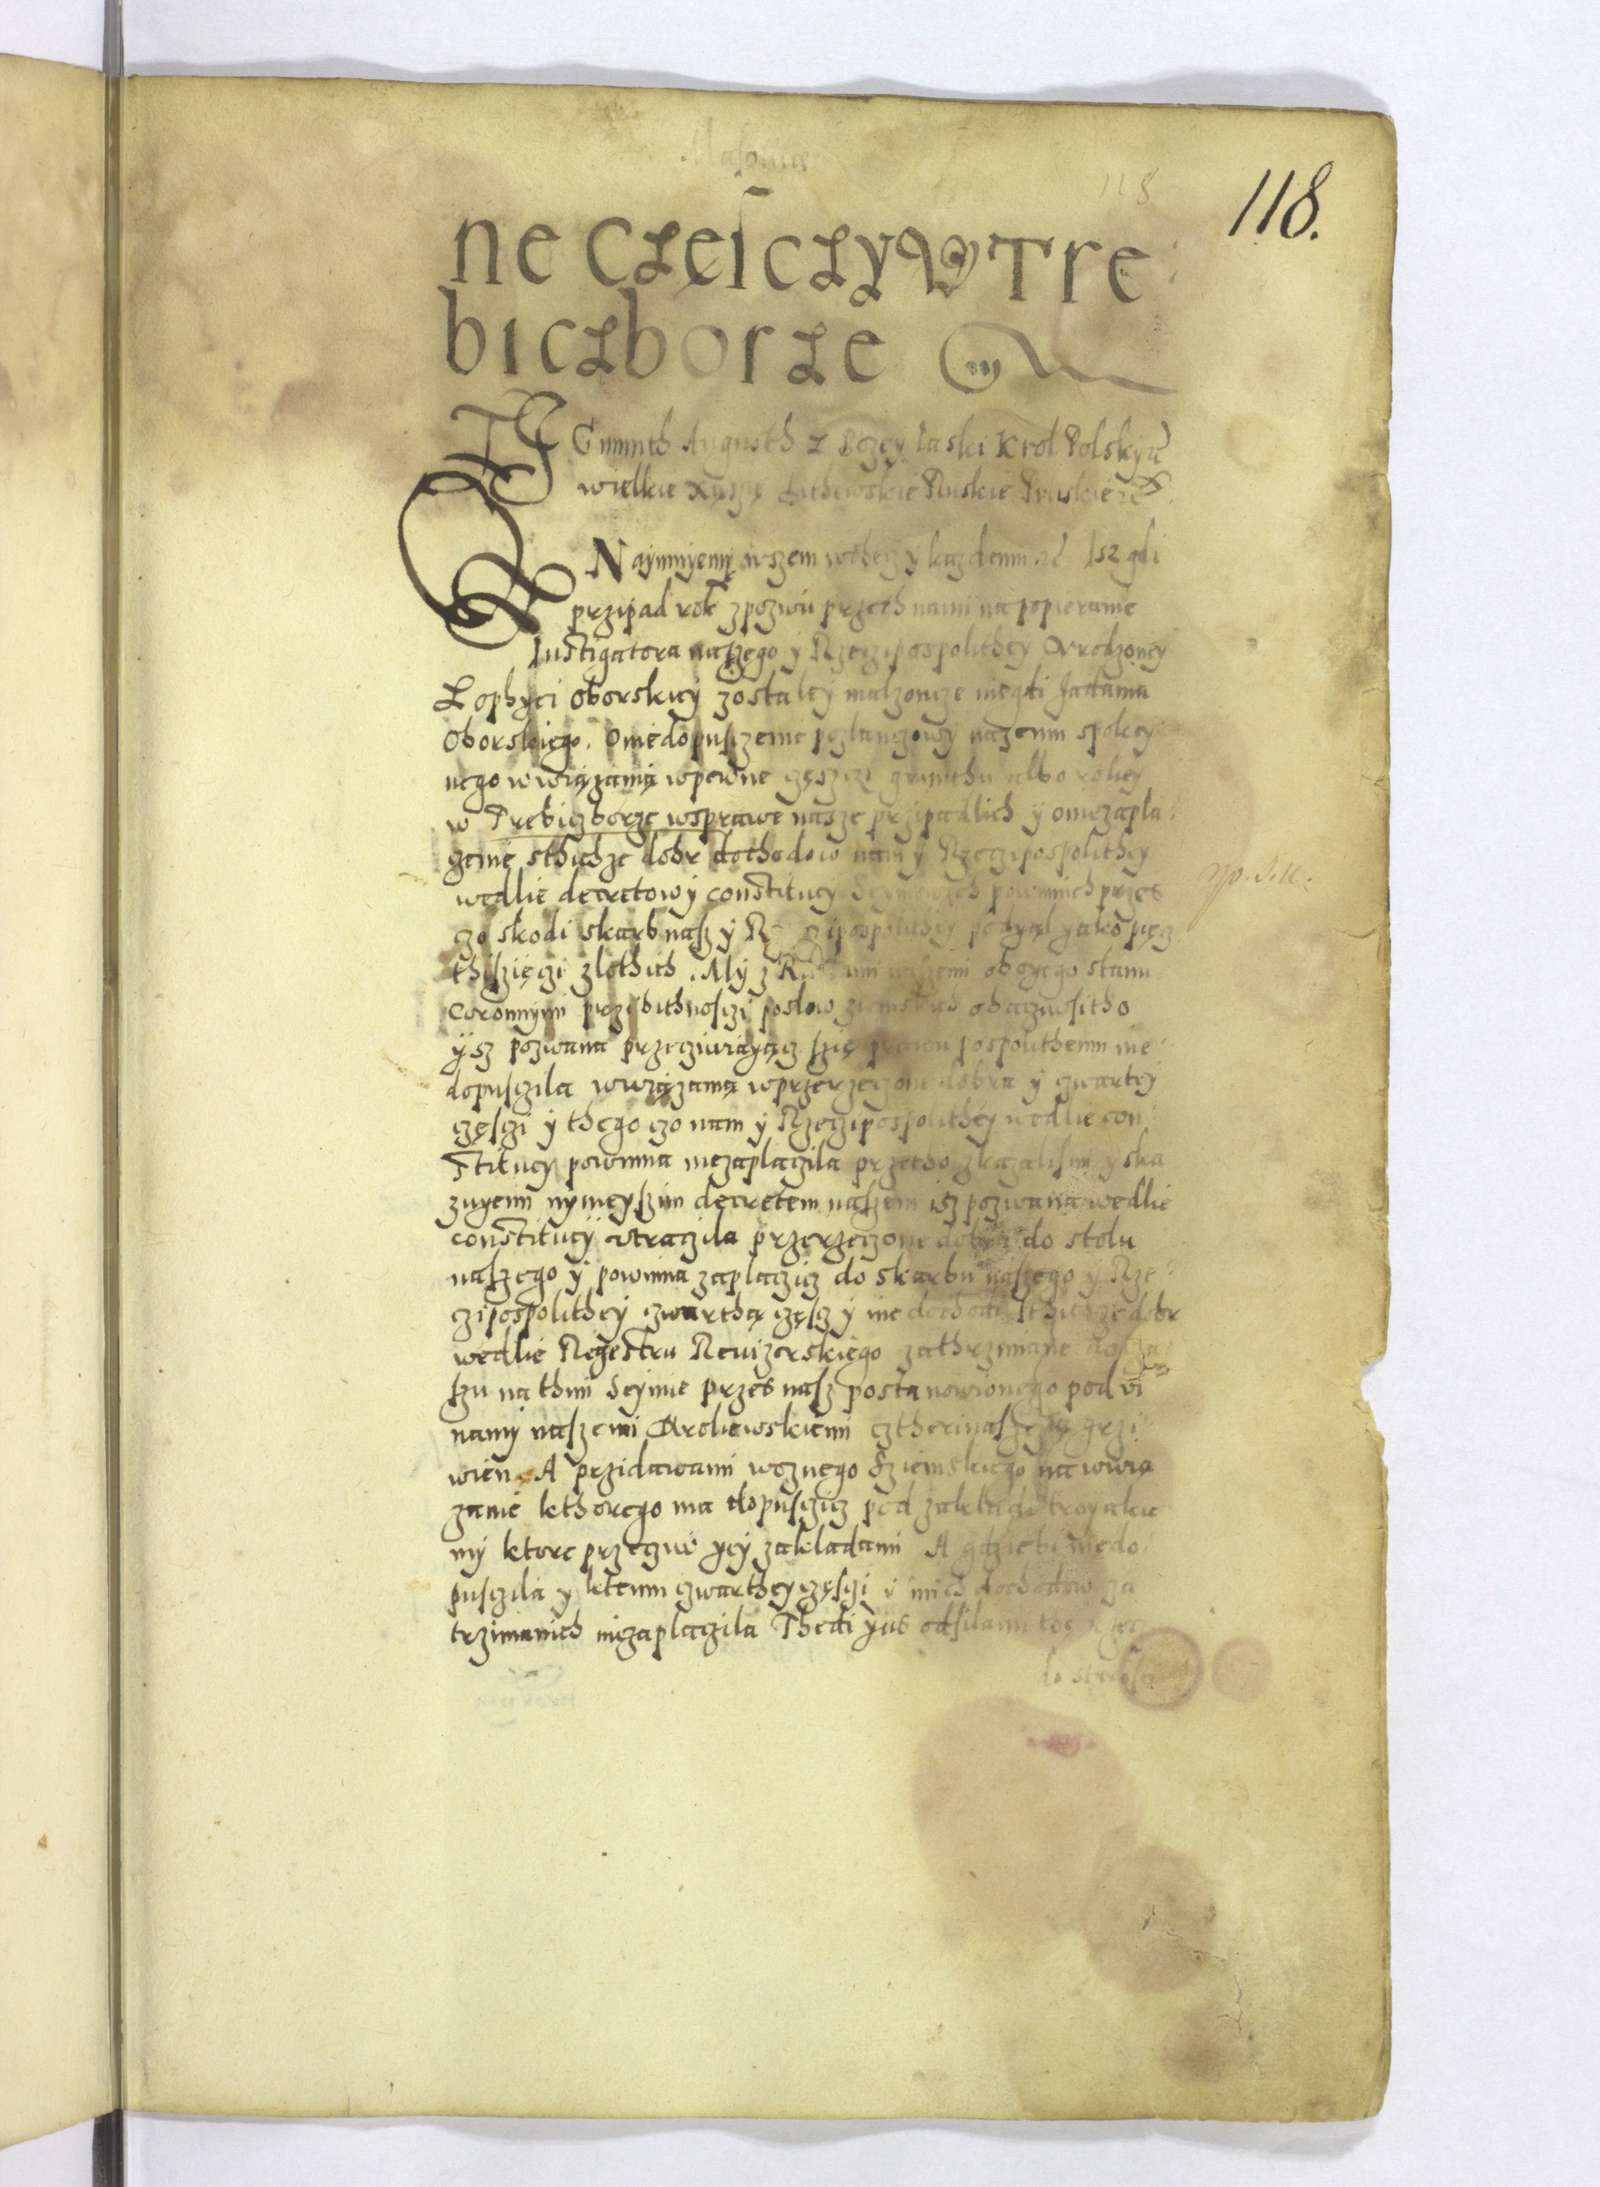 118.
ne częsczy w Tre
biczborze
ZIGmunth Augusth z Bozey laski Krol Polsky
wielkie Xąszę Lithewskie Ruskie Pruskie
Naymuyemy wszem wobecz y kazdemu Isz gdi
przipad rok z pozwu przed nami na popieranie
Instigatora naszego y Rzeczipospolithey Urodzoney
Zophyei Oborskiey zostaley malzoncze niegdi Jadama
Oborskiego. O niedopusczenie poslanczowy naszemu spokoy
nego wwiązania w pewne częszczi grunthu albo roliey
w Trebiczborze w sprawę nasze przipadlich y o niezapla
czenie sthichze dobr dochodow nam y Rzeczipospolithey
wedlie decretow y constitucy Seymowych powinnich przes
czo skodi skarb nasz y Rzeczipospolithey podyąl yako pięcz
thiszięczi zlothich. My z Radami naszemi oboyego stanu
coronnymi przi bithnosczi poslow ziemskich obacziwsi tho
ysz pozwana przecziwiayącz szię prawu pospolithemu nie
dopusczila wwiązania w przerzeczone dobra y czwartey
częsczi y thego czo nam y Rzeczipospolithey wedlie con
stitucy powinna niezaplaczila przetho skazalismi y ska
zuyemi nynieyszim decretem naszem isz pozwana wedlie
constitucy utraczila przerzeczone dobra do stolu
naszego y powinna zaplaczicz do skarbu naszego y Rze
czipospolithey czwarthą częscz y ine dochodi sthichze dobr
wedlie Regestru Revizorskiego zathrzimane do cza
szu na thim Seymie przes nasz postanowionego pod vi
namy naszemi Kroliewskiemi cztherinasczię grzi
wien. A przidawami woznego Sziemskiego na wwią
zanie kthorego ma dopusczicz pod zakladi troyakie
my ktore przeciw yey zakladami A gdziebi niedo
pusczila y ktemu czwarthey częsczi y inich dochodow za
trzimanich niezaplaczila Thedi yus odsilami the rzecz
do starosti